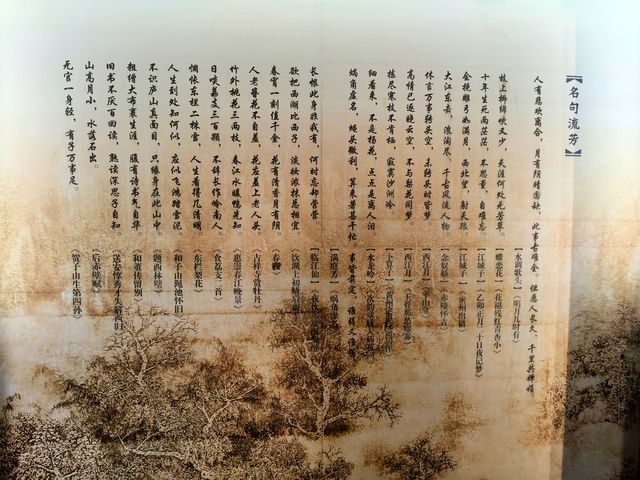 【名句流芳】
人有悲欢离合，月有阴晴圆缺，此事古难全。但愿人长久，千里共婵娟。
《水调歌头（明月几时有）》
枝上柳绵吹又少，天涯何处无芳草
《蝶恋花（花褪残红青杏小）》
十年生死两茫茫，不思量，自难忘
《江城子（乙卯正月二十日夜记梦）》
会挽雕弓如满月，西北望，射天狼
《江城子（密州出猎）》
大江东去，浪淘尽，千古风流人物
《念奴娇（赤壁怀古）》
休言万事转头空，未转头时皆梦
《西江月（平山堂）》
高情已逐晓云空，不与梨花同梦
《西江月（玉骨那愁瘴雾）》
拣尽寒枝不肯栖，寂寞沙洲冷
《卜算子
细看来，不是杨花，点点是离人泪
《水龙吟
蜗角虚名，蝇头微利，算来著甚干忙 事皆前定，谁弱又谁强
《满庭芳（蜗角虚名）》
长恨此身非我有，何时忘却营营
《临江仙
欲把西湖比西子，淡妆浓抹总相宜。
《饮湖上初晴后雨》
春宵一刻值千金，花有清香月有阴。
《春宵》
人老簪花不自羞，花应羞上老人头。
《吉祥寺赏牡丹》
竹外桃花三两枝，春江水暖鸭先知
《惠崇春江晚景》
日啖荔支三百颗，不辞长作岭南人。
《食荔支二首》
惆怅东栏二株雪，人生看得几清明
《东栏梨花》
人生到处知何似，应似飞鸿踏雪泥
《和子由渑池怀旧》
不识庐山真面目，只缘身在此山中。
《题西林壁》
粗缯大布裹生涯，腹有诗书气自华。
《和董传留别》
旧书不厌百回读，熟读深思子自知。
《送安惇秀才失解西归》
山高月小，水落石出。
《后赤壁赋》
无官一身轻，有子万事足。
《贺子由生第四孙》